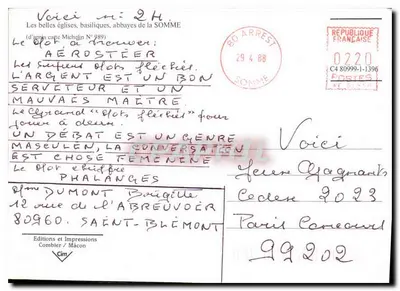 Voici n: 2H.
Les belles églises, basiliques, abbayes de la SOMME
(d'après carte Michelin N° 989)
Le Mot à trouver:
AÉROSTIER
Les Supers Mots fléchés:
L'ARGENT EST UN BON
SERVITEUR ET UN
MAUVAIS MAITRE.
Le Grand "Mots fléchés" pour
jouer à deux:
UN DÉBAT EST UN GENRE
MASCULIN, LA CONVERSATION
EST CHOSE FEMININE
Le Mot chiffré
PHALANGES
Mme DUMONT Brigitte
12 rue de l'ABREUVOIR
80960. SAINT-BLIMONT
Editions et Impressions
Combier / Mâcon
Cim
80 ARREST
29 4 88
SOMME
REPUBLIQUE
FRANÇAISE
0220
POSTES
C4 80999-1-1396
Voici
Jeux Gagnants
Cedex 2023
Paris Concours
99202